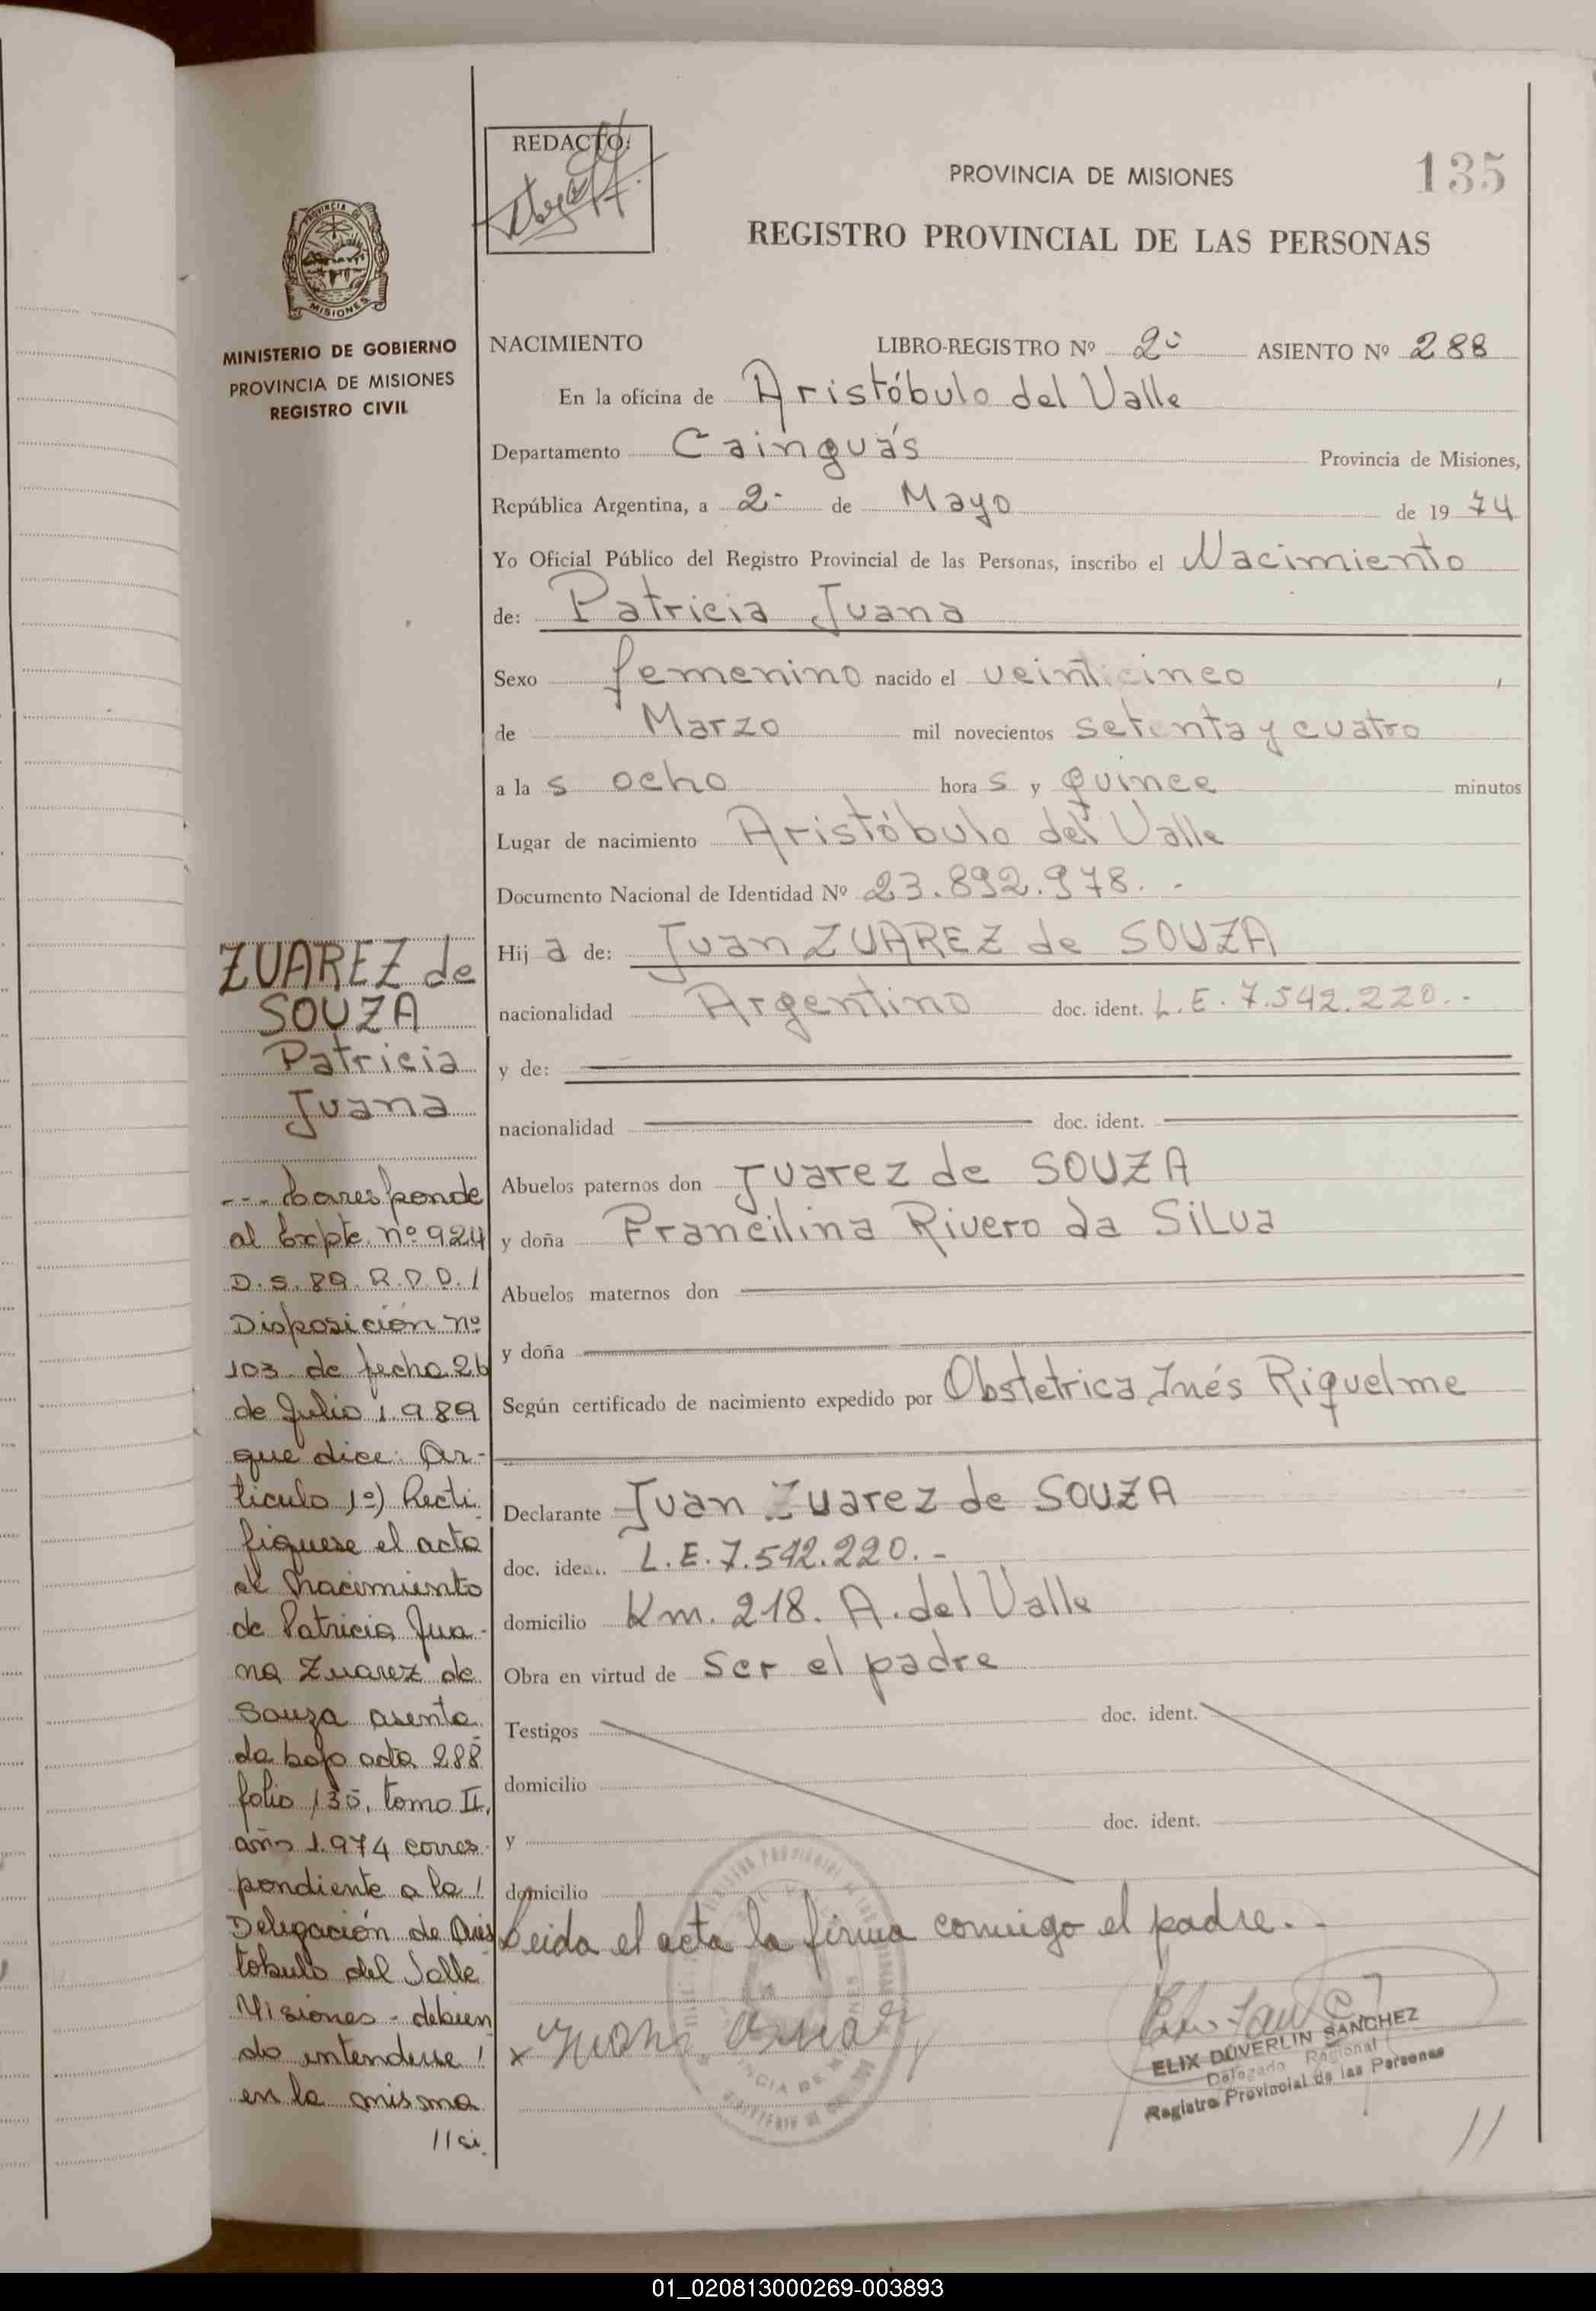 REDACTO:
PROVINCIA DE MISIONES
135
REGISTRO PROVINCIAL DE LAS PERSONAS
PROVINCIA DE
MISIONES
MINISTERIO DE GOBIERNO
PROVINCIA DE MISIONES
REGISTRO CIVIL
NACIMIENTO LIBRO-REGISTRO Nº 2º ASIENTO Nº 288
En la oficina de Aristóbulo del Valle
Departamento Cainguás Provincia de Misiones,
República Argentina, a 2- de Mayo de 19 74
Yo Oficial Público del Registro Provincial de las Personas, inscribo el Nacimiento
de: Patricia Juana
Sexo femenino nacido el veinticinco
de Marzo mil novecientos setenta y cuatro
a la s ocho hora s y quince minutos
Lugar de nacimiento Aristóbulo del Valle
Documento Nacional de Identidad Nº 23.892.978.-
Hij a de: Juan ZUAREZ de SOUZA
nacionalidad Argentino doc. ident. L.E. 7.542.220.-
y de:
nacionalidad doc. ident.
Abuelos paternos don Juarez de SOUZA
y doña Francilina Rivero da SiLva
Abuelos maternos don
y doña
Según certificado de nacimiento expedido por Obstetrica Inés Riquelme
Declarante Juan Zuarez de SOUZA
doc. ident. L.E. 7.542.220.-
domicilio Km. 218. A. del Valle
Obra en virtud de Ser el padre
Testigos doc. ident.
domicilio
y doc. ident.
domicilio
Leida el acta la firma conmigo el padre.-
x Juan
ELIX DUVERLIN SANCHEZ
Delegado Regional
Registro Provincial de las Personas
//
ZUAREZ de
SOUZA
Patricia
Juana
--- Corresponde
al Expte. nº 924
D.S. 89. R.P.P. /
Disposición nº
103 de fecha 26
de Julio 1.989
que dice: Ar-
ticulo 1º) Recti
fiquese el acta
de nacimiento
de Patricia Jua-
na Zuarez de
Souza asenta
da bajo acta 288
folio 135, tomo II,
año 1.974 corres
pondiente a la /
Delegación de Aris
tobulo del Valle
Misiones - debien
do entenderse /
en la misma
//si.
01_020813000269-003893